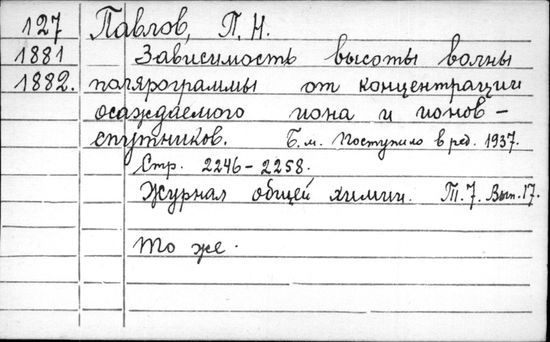 127 Павлов, П. Н.
1881 Зависимость высоты волны
1882. полярограммы от концентрации
осаждаемого иона и ионов-
спутников. Б. м. Поступило в ред. 1937.
Стр. 2246-2258.
Журнал общей химии. Т. 7. Вып. 17.
То же.